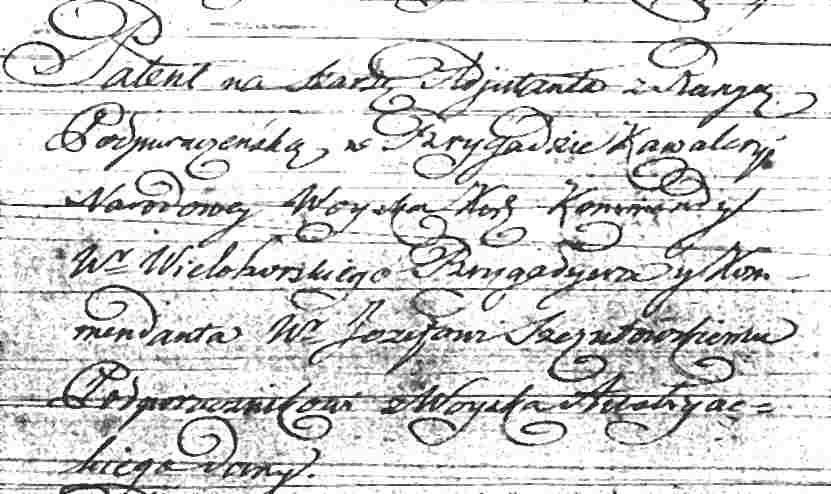 Patent na szarżę Adjutanta z Rangą
Podporuczeńską, w Brygadzie Kawalery
Narodowey Woyska Kor. Kommendy
Wo Wielohorskiego Brygadyera y Kom-
mendanta Wo Jozefowi Szczutowskiemu
Podporucznikowi z Woyska Austryac=
kiego dany.